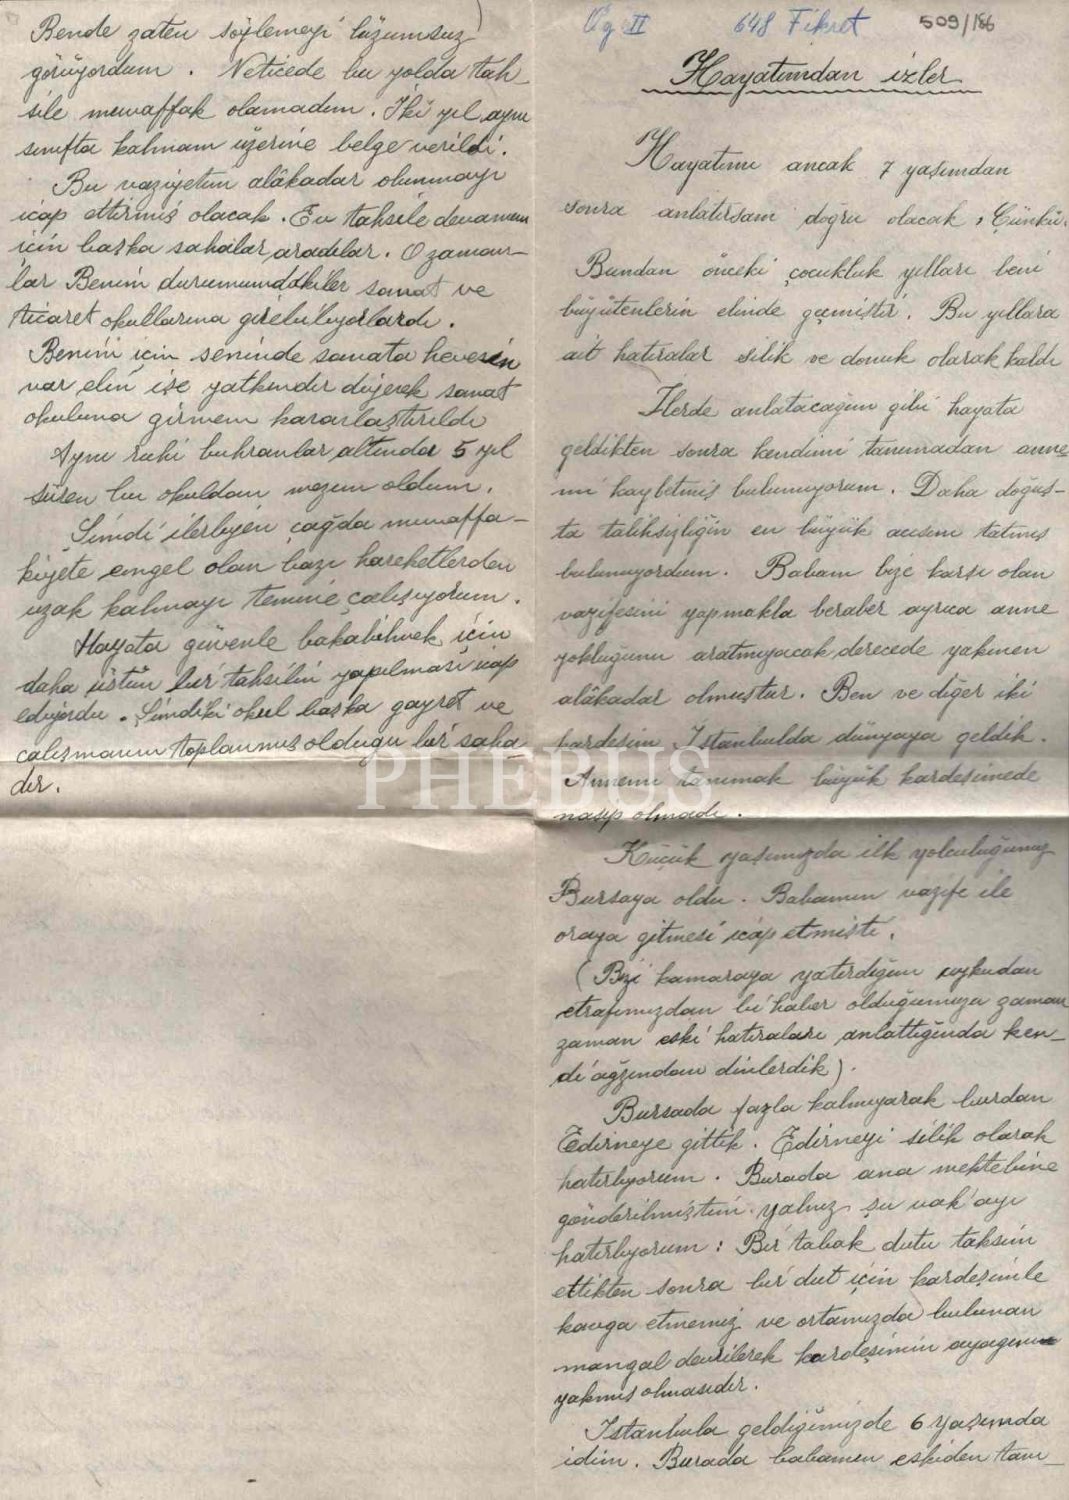 Öğ II 648 Fikret 509/186
Hayatımdan izler
Hayatımı ancak 7 yaşımdan
sonra anlatırsam doğru olacak, Çünkü.
Bundan önceki çocukluk yılları beni
büyütenlerin elinde geçmiştir. Bu yıllara
ait hatıralar silik ve donuk olarak kaldı
İlerde anlatacağım gibi hayata
geldikten sonra kendimi tanımadan anne
mi kaybetmiş bulunuyorum. Daha doğuş-
ta talihsizliğin en büyük acısını tatmış
bulunuyordum. Babam bize karşı olan
vazifesini yapmakla beraber ayrıca anne
yokluğunu aratmıyacak derecede yakınen
alâkadar olmuştur. Ben ve diğer iki
kardeşim İstanbulda dünyaya geldik.
Annemi tanımak büyük kardeşimede
nasip olmadı.
Küçük yaşımızda ilk yolculuğumuz
Bursaya oldu. Babamın vazife ile
oraya gitmesi icap etmişti.
(Bizi kamaraya yatırdığını uykudan
etrafımızdan bi haber olduğumuzu zaman
zaman eski hatıraları anlattığında ken-
di ağzından dinlerdik).
Bursada fazla kalmıyarak burdan
Edirneye gittik. Edirneyi silik olarak
hatırlıyorum. Burada ana mektebine
gönderilmiştim. yalnız şu vak'ayı
hatırlıyorum: Bir tabak dutu taksim
ettikten sonra bir dut için kardeşimle
kavga etmemiz ve ortamızda bulunan
mangal devrilerek kardeşimin ayağını
yakmış olmasıdır.
İstanbula geldiğimizde 6 yaşımda
idim. Burada babamın eskiden tanı-
Bende zaten söylemeyi lüzumsuz
görüyordum. Neticede bu yolda tah
sile muvaffak olamadım. İki yıl aynı
sınıfta kalmam üzerine belge verildi.
Bu vaziyetim alâkadar olunmayı
icap ettirmiş olacak. Ev tahsile devamım
için başka sahalar aradılar. O zaman-
lar Benim durumumdakiler sanat ve
ticaret okullarına girebiliyorlardı.
Benim için seninde sanata hevesin
var elin ise yatkındır diyerek sanat
okuluna girmem kararlaştırıldı
Aynı ruhi buhranlar altında 5 yıl
süren bu okuldan mezun oldum.
Şimdi ilerliyen çağda muvaffa-
kiyete engel olan bazı hareketlerden
uzak kalmayı temine çalışıyorum.
Hayata güvenle bakabilmek için
daha üstün bir tahsilin yapılması icap
ediyordu. Şimdiki okul başka gayret ve
çalışmanın toplanmış olduğu bir saha
dır.
PHEBUS